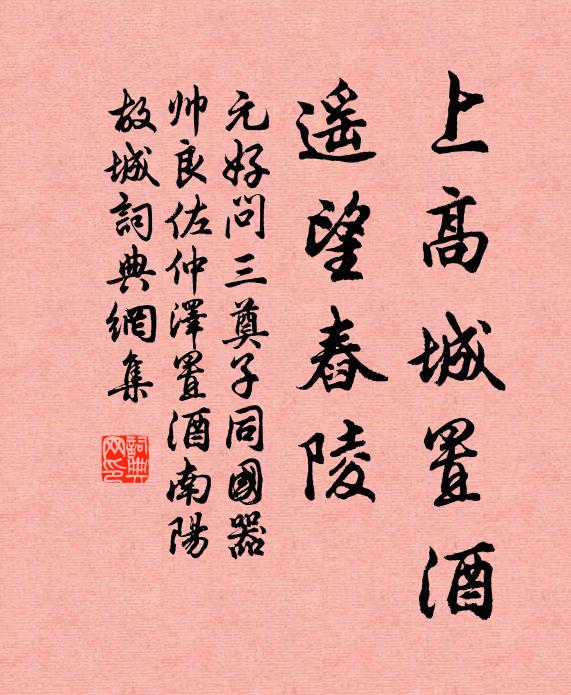 上高城置酒
遥望舂陵
元好問三奠子同國器
帅良佐仲澤置酒南陽
故城詞典網集
詞典网印